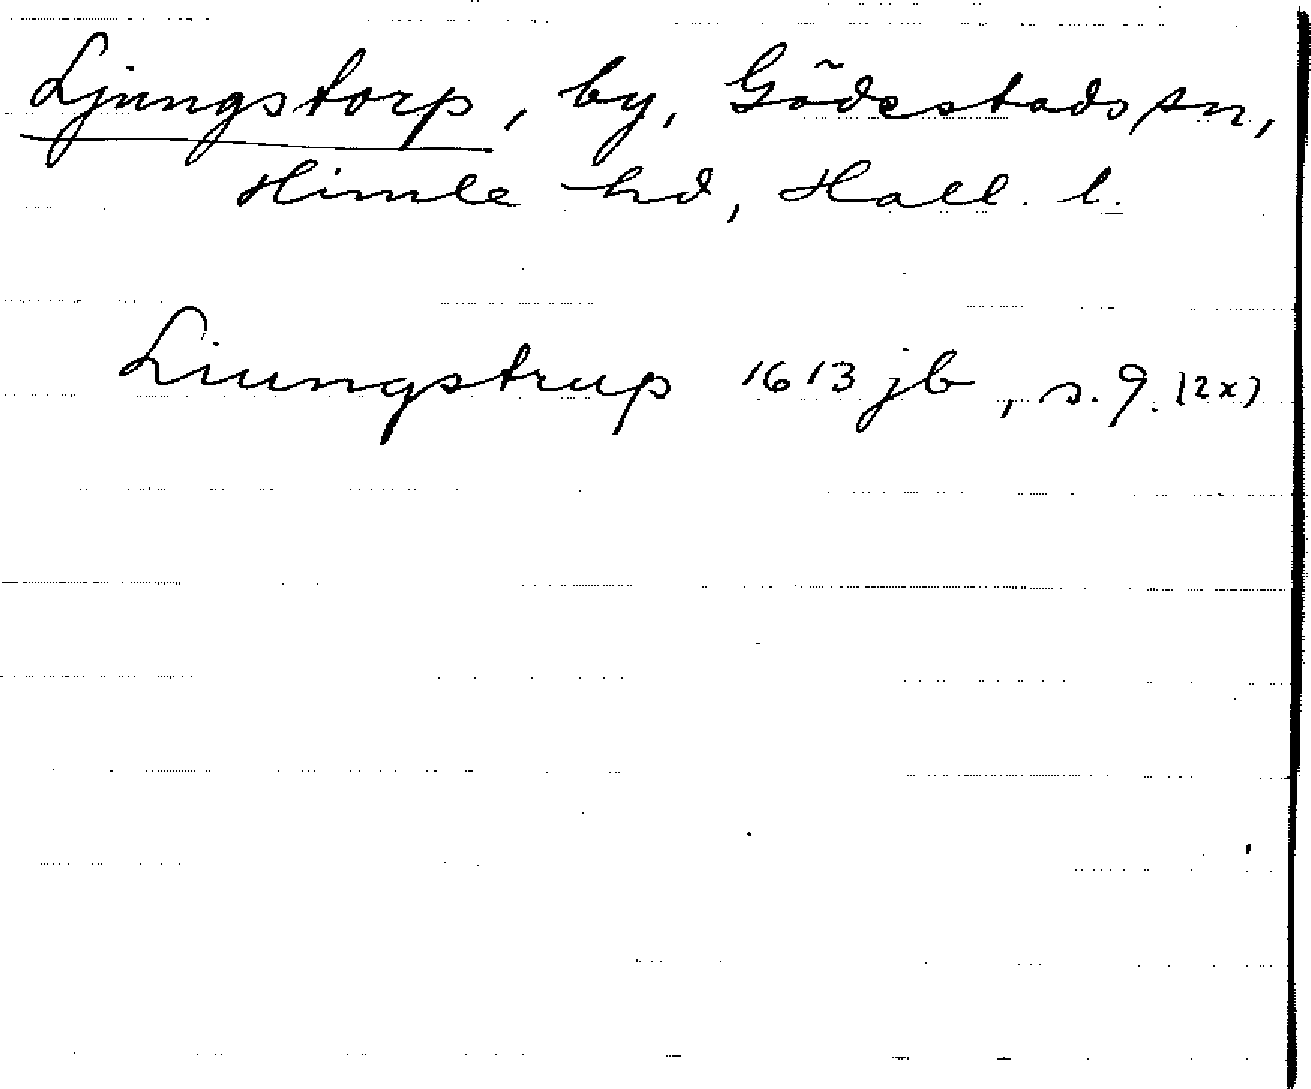 Ljungstorp, by, Gödestads sn,
Himle hd, Hall. l.
Liungstrup 1613 jb, s. 9. (2x)